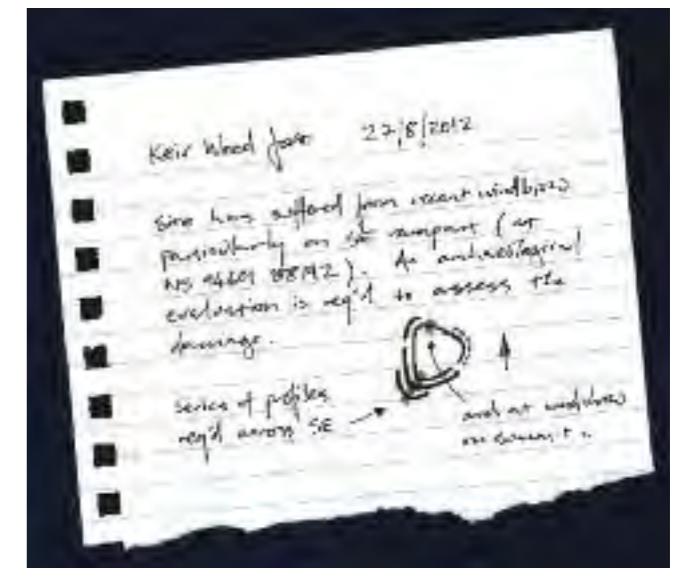 Keir Wood fort 27/8/2012
Site has suffered from recent windblow
particularly on SE rampart (at
NS). An archaeological
evaluation is req'd to assess the
damage.
series of profiles
req'd across SE
and at windblow
on summit.